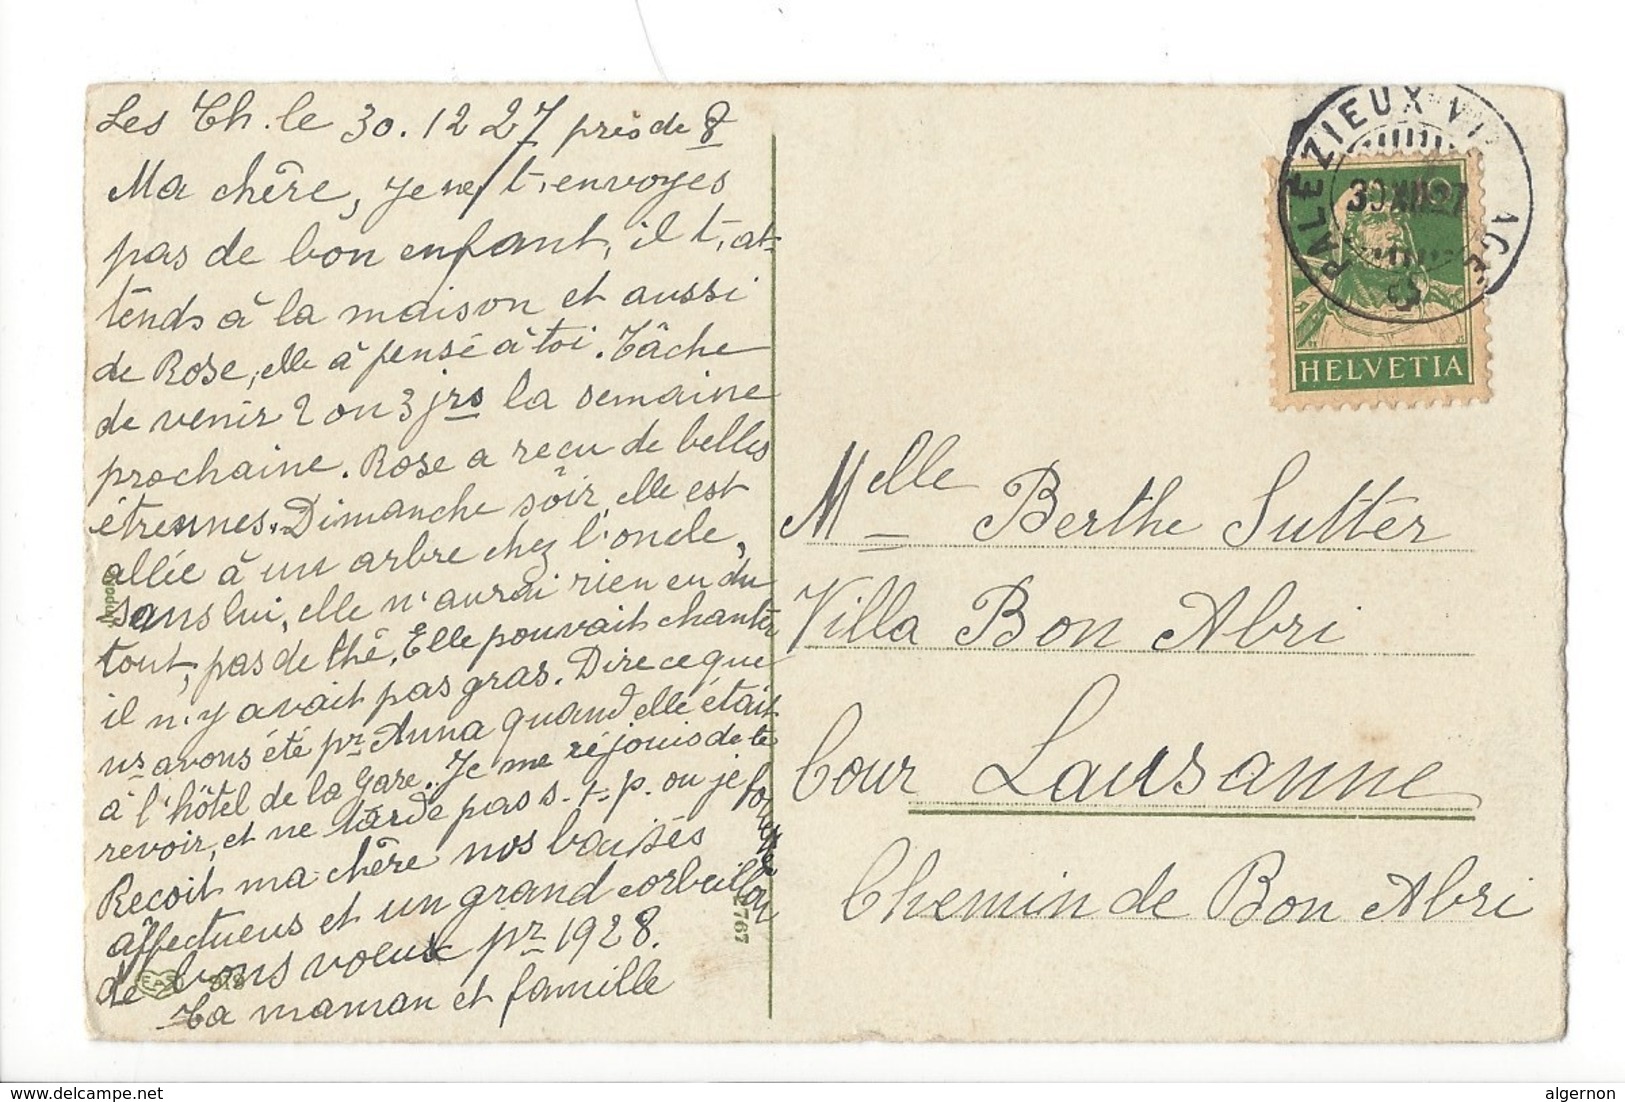 Les Th. le 30.12 27 près de 8
Ma chère, je ne t'envoyes
pas de bon enfant, il t'at-
tends à la maison et aussi
de Rose, elle à pensé à toi. Tâche
de venir 2 ou 3 jrs la semaine
prochaine. Rose a reçu de belles
étrennes. Dimanche sôir elle est
allée à un arbre chez l'oncle,
sans lui, elle n'aurai rien eu du
tout, pas de thé. Elle pouvait chanter
il n'y avait pas gras. Dire ce que
nrs avons été pr Anna quand elle était
à l'hôtel de la Gare. Je me réjouis de te
revoir, et ne tarde pas s.t.p. ou je
Recoit ma chère nos baisés
affectueus et un grand corbeille
de bons voeux pr 1928.
Ta maman et famille
Import
EAS
2767
PALÉZIEUX VILLAGE
30 XII 27
HELVETIA
Melle Berthe Sutter
Villa Bon Abri
Cour Lausanne
Chemin de Bon Abri
delcampe.net
algernon